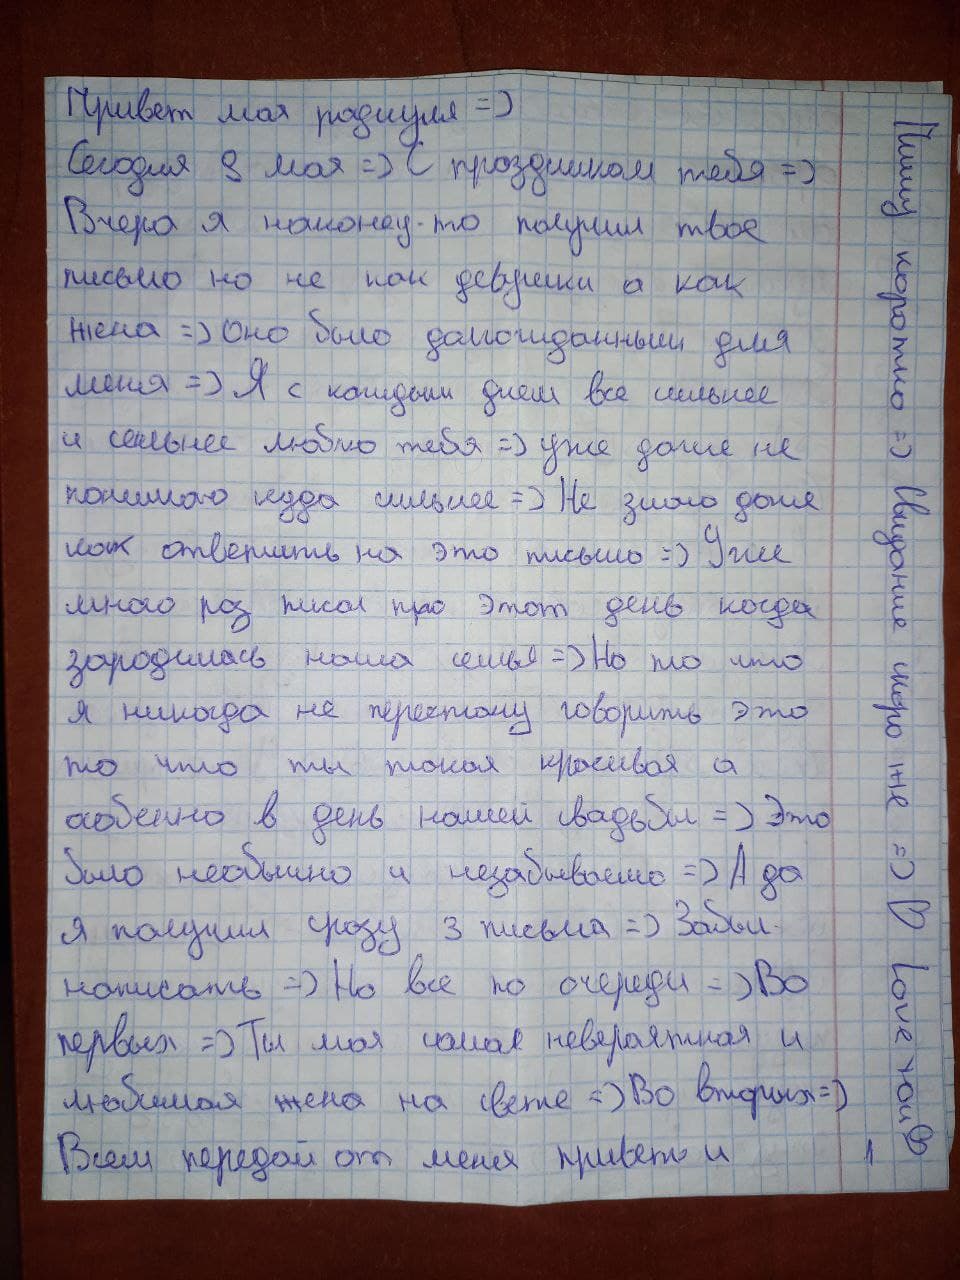 Привет моя роднуля =)
Сегодня 9 мая =) С праздником тебя =)
Вчера я наконец-то получил твое
письмо но не как девушки а как
жена =) Оно было долгожданным для
меня =) Я с каждым днем все сильнее
и сильнее люблю тебя =) Уже даже не
понимаю куда сильнее =) Не знаю даже
как ответить на это письмо =) Уже
много раз писал про этот день когда
зародилась наша семья =) Но то что
я никогда не перестану говорить это
то что ты такая красивая а
особенно в день нашей свадьбы =) Это
было необычно и незабываемо =) А да
я получил сразу 3 письма =) Забыл
написать =) Но все по очереди =) Во
первых =) Ты моя самая невероятная и
любимая жена на свете =) Во вторых =)
Всем передай от меня приветы и
1
Пишу коротко =) Свидание скоро же =) Love you